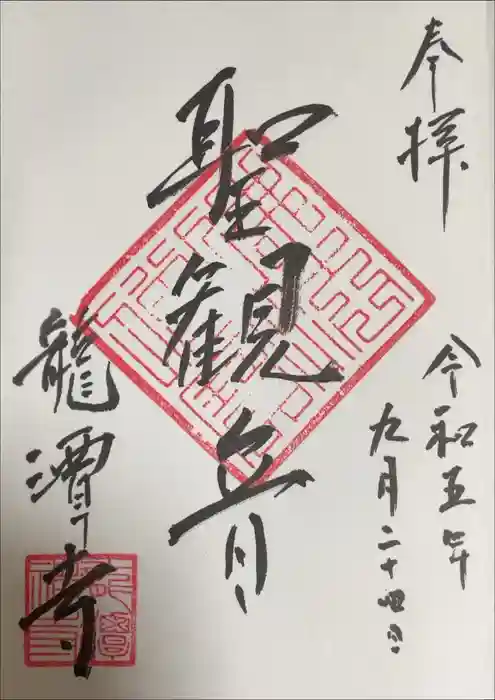 奉拝
令和五年
九月二十四日
聖観音
龍潭寺